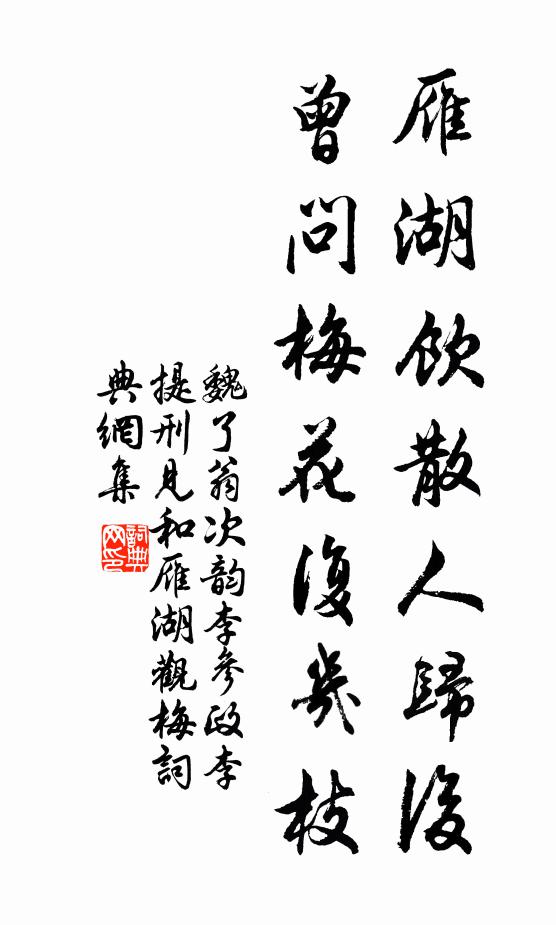 雁湖飲散人歸後
曾問梅花復幾枝
魏了翁次韵李參政李
提刑見和雁湖觀梅詞
典網集
詞典網印